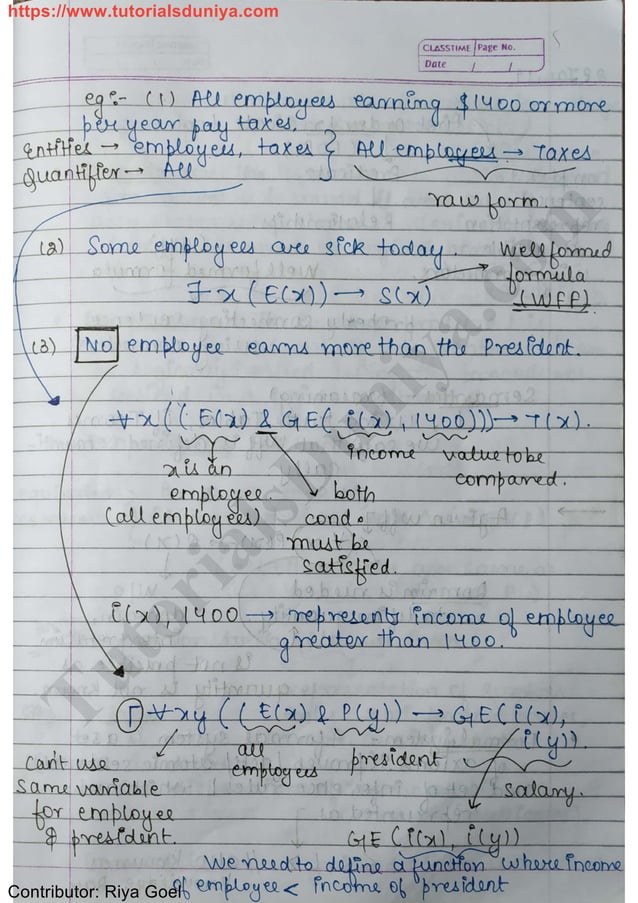 https://www.tutorialsduniya.com
CLASSTIME Page No.
Date / /
eg:- (1) All employees earning $1400 or more
per year pay taxes.
Entities → employees, taxes } All employees → Taxes
Quantifier → All
raw form.
(2) Some employees are sick today. Well formed
formula
(WFF).
∃ x (E(x)) → S(x)
(3) No employee earns more than the President.
∀x((E(x) & GE(i(x), 1400))) → T(x).
income value to be
compared.
x is an
employee.
(all employees)
both
cond.
must be
satisfied.
i(x), 1400 → represents income of employee
greater than 1400.
Γ ∀xy ((E(x) & P(y)) → GE(i(x),
i(y)).
all
employees
president
salary.
can't use
same variable
for employee
& president.
GE(i(x), i(y))
We need to define a function where income
of employee < income of president
Contributor: Riya Goel
TutorialsDuniya.com